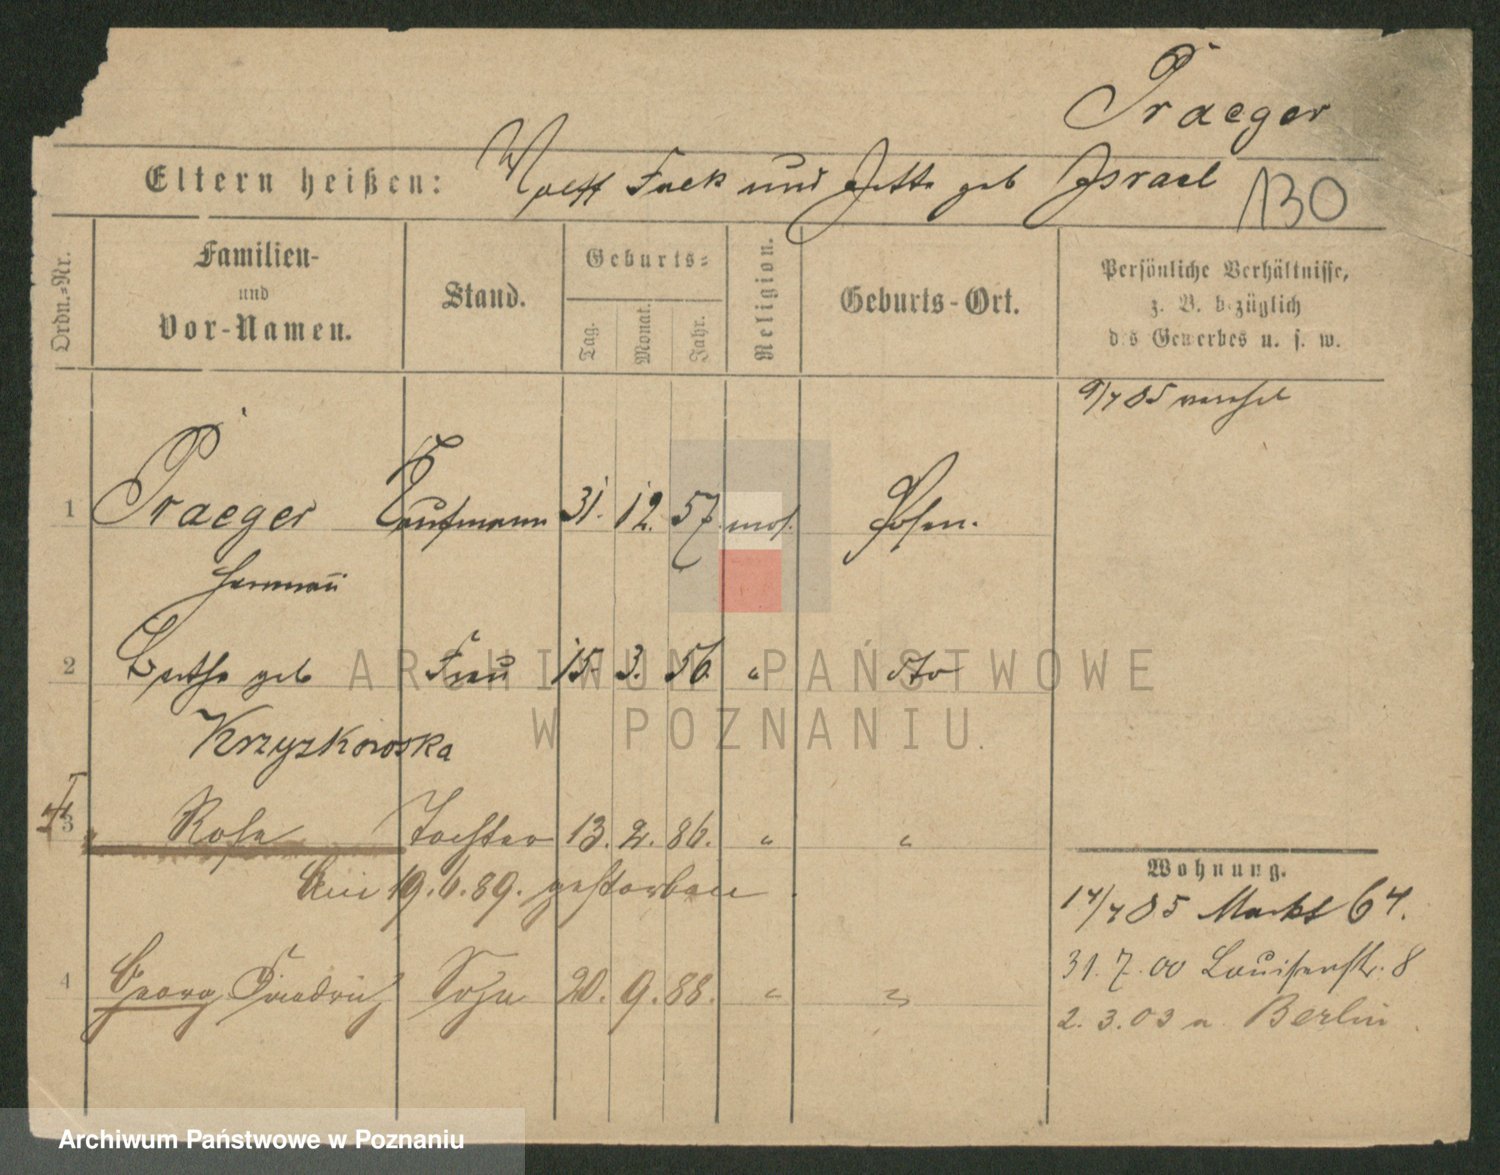 Praeger
Eltern heißen: Wolff Falk und Jette geb Israel 130
Ordn.-Nr.
Familien-
und
Vor-Namen.
Stand.
Geburts-
Tag.
Monat.
Jahr.
Religion.
Geburts-Ort.
Persönliche Verhältnisse,
z. B. bezüglich
des Gewerbes u. s. w.
9/7 85 vereh
1 Praeger Kaufmann 31. 12. 57. mos. Posen.
Hermann
2 Bertha geb Frau 15. 3. 56. " dto
Krzyzkowska
3 Rosa Tochter 13. 2. 86. " "
Am 19.6.89. gestorben
4 Georg Friedrich Sohn 20. 9. 88. " "
Wohnung.
17/7 85 Markt 67.
31. 7. 00 Louisenstr. 8
2. 3. 03 n. Berlin
ARCHIWUM PAŃSTWOWE
W POZNANIU
Archiwum Państwowe w Poznaniu